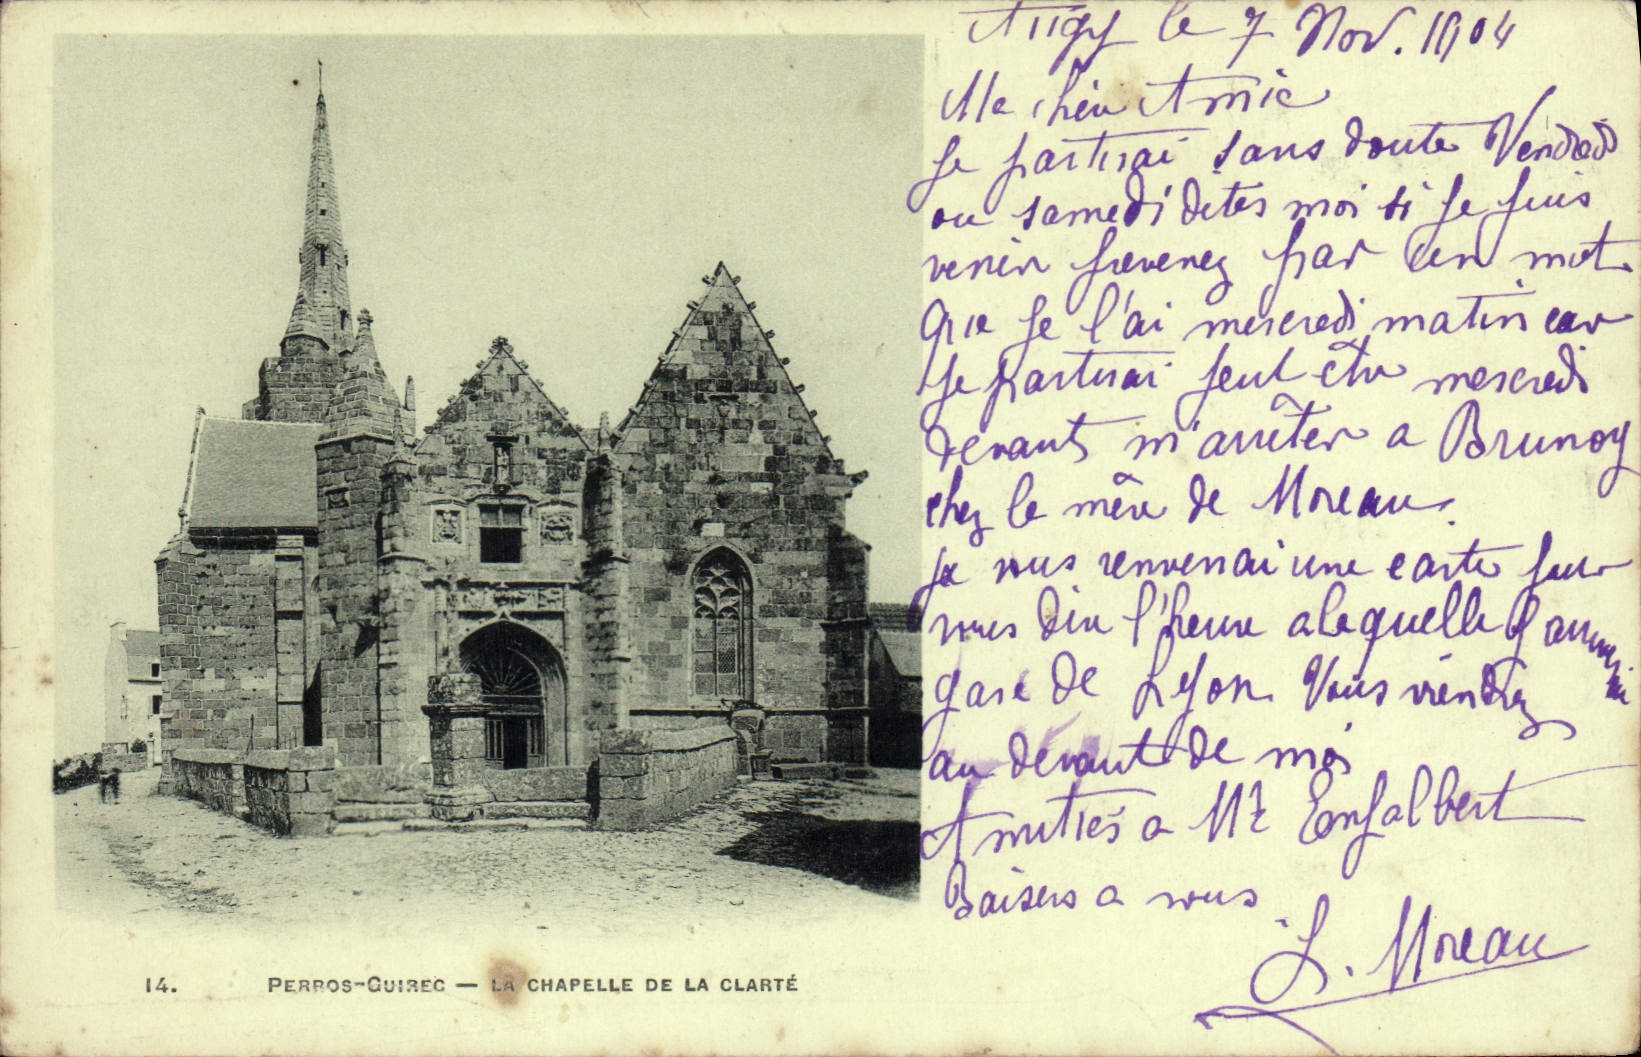 le 7 Nov. 1904
Ma chère Amie
Je partirai sans doute Vendredi
ou samedi dites moi si je puis
venir prevenez par un mot
que je l'ai mercredi matin car
je partirai peut être mercredi
devant m'arrêter a Brunoy
chez la mère de Moreau.
je vous renverrai une carte pour
vous dire l'heure a laquelle j'arriverai
gare de Lyon Vous viendrez
au devant de moi
Amitiés a Mr
Baisers a vous
L. Moreau
14. PERROS-GUIREC — LA CHAPELLE DE LA CLARTÉ